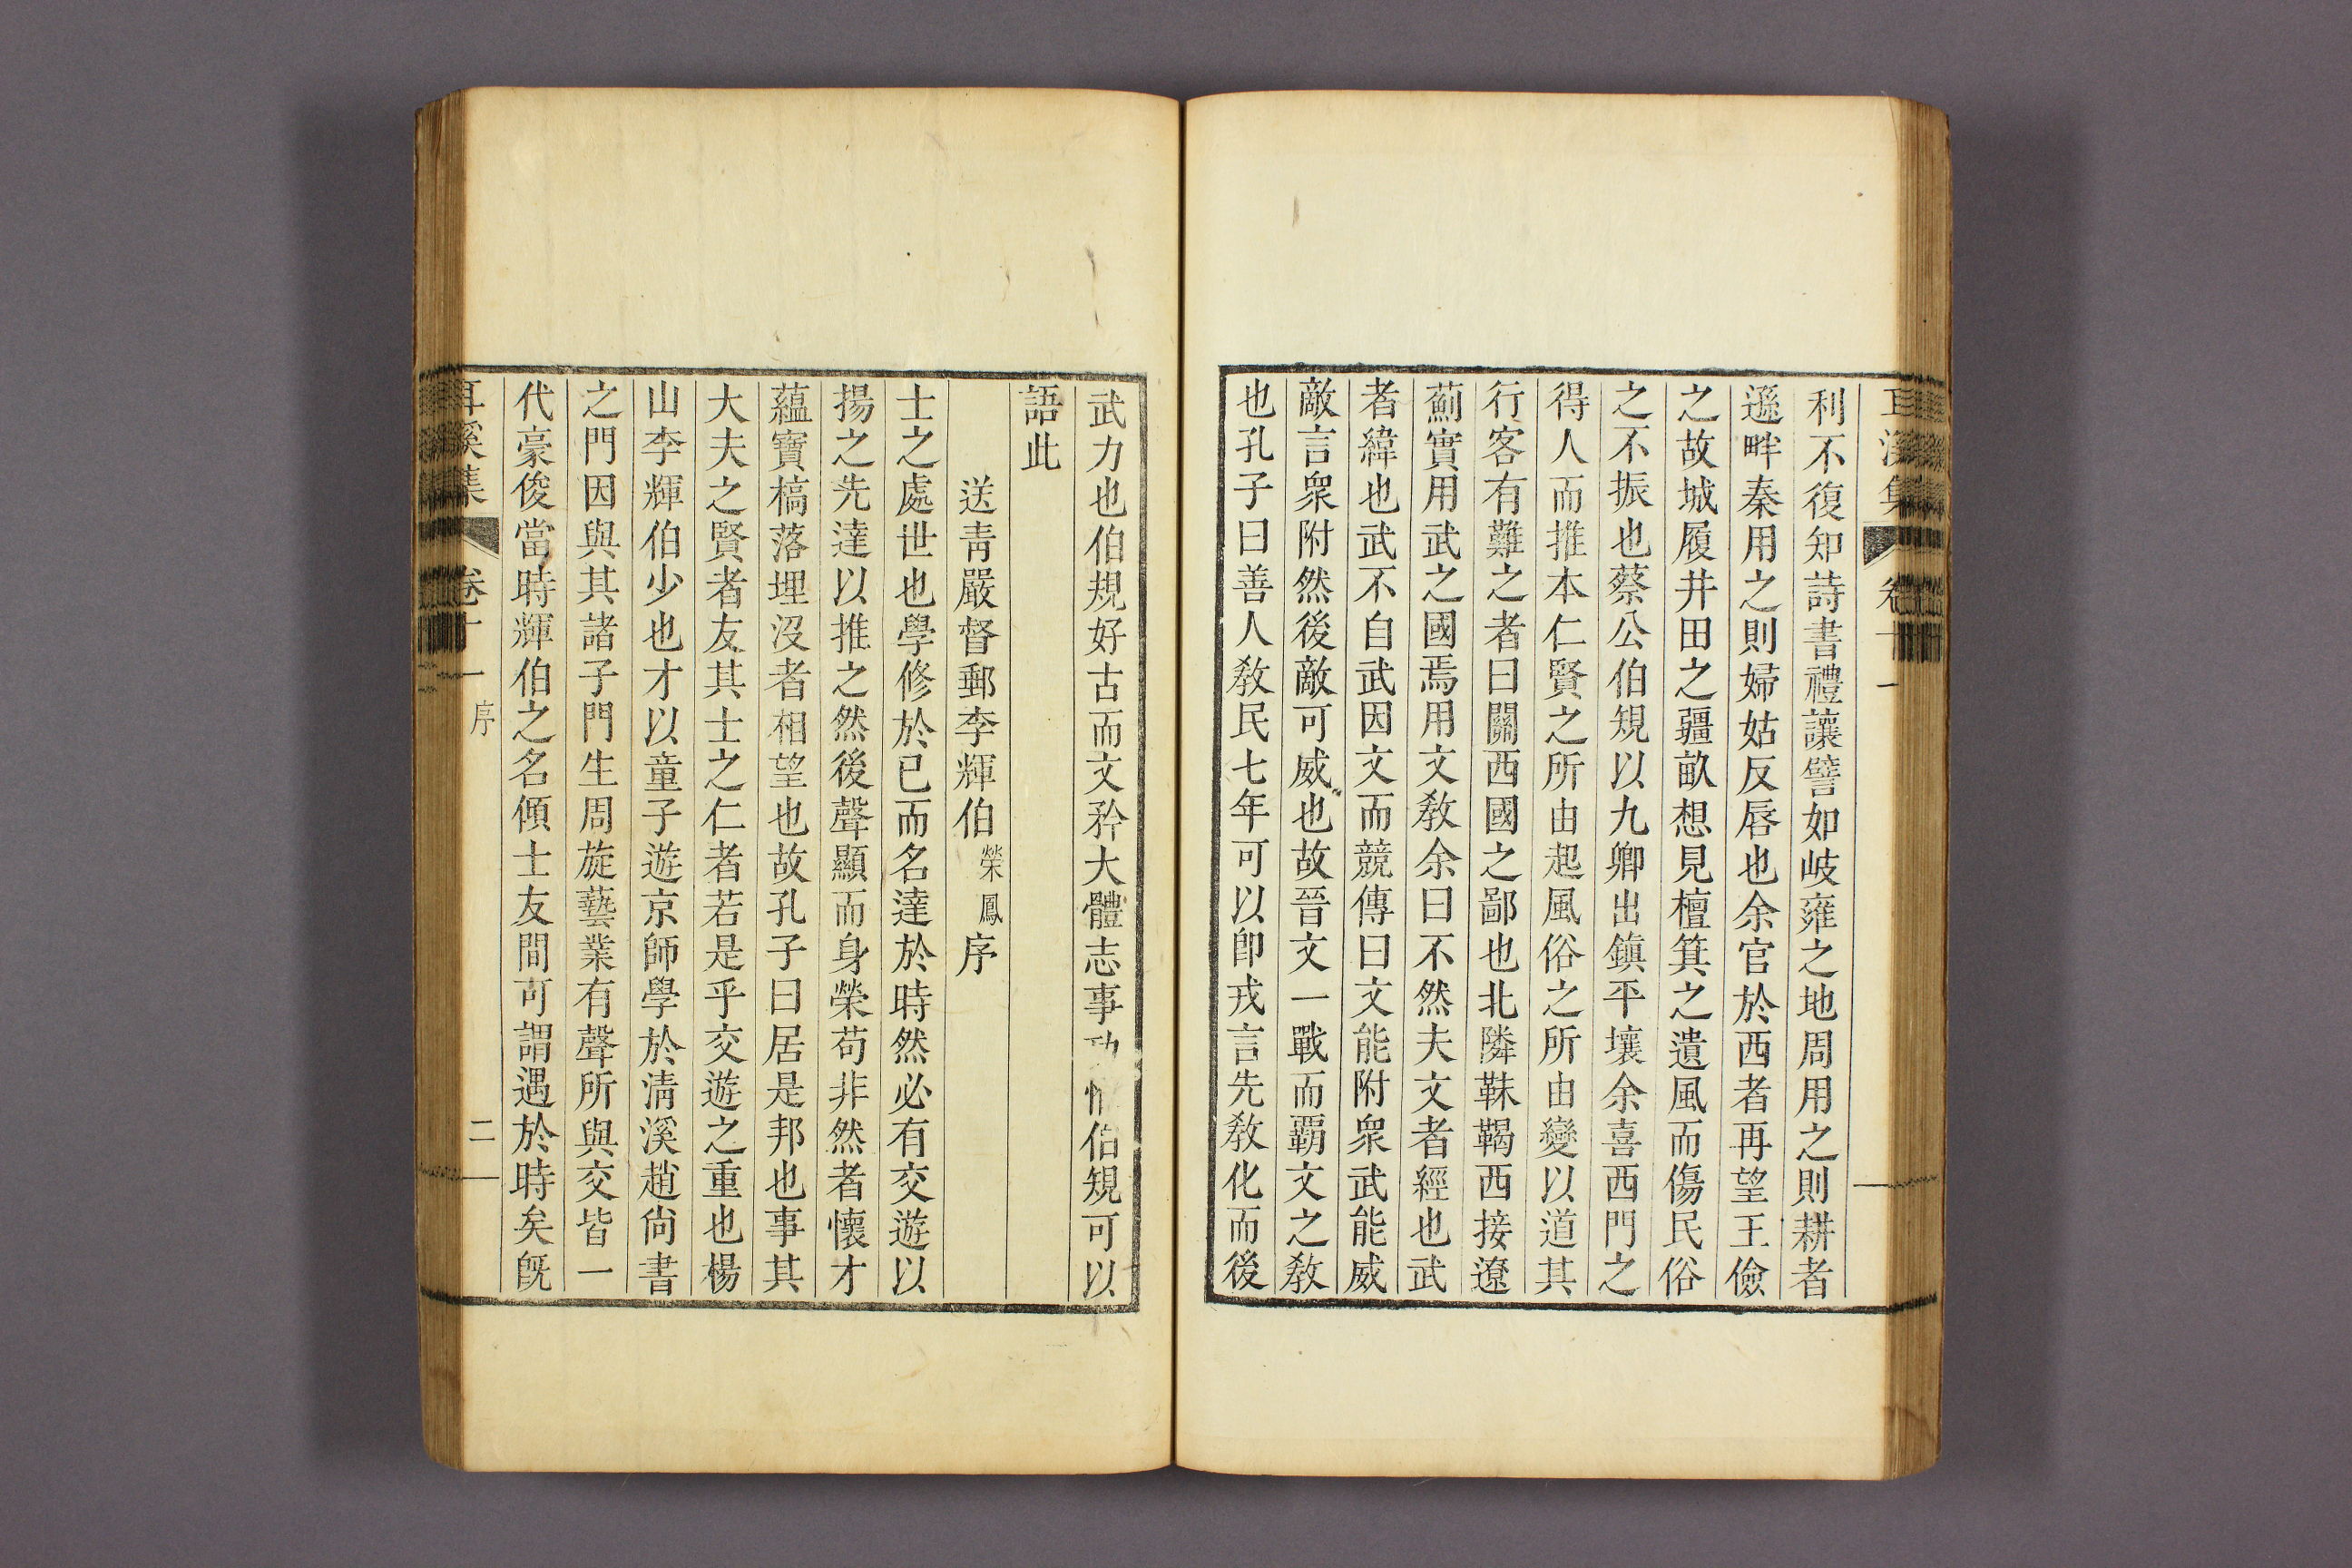 利不復知詩書禮讓譬如岐雍之地周用之則耕者
遜畔秦用之則婦姑反唇也余官於西者再望王儉
之故城履井田之疆畝想見檀箕之遺風而傷民俗
之不振也蔡公伯規以九卿出鎭平壤余喜西門之
得人而推本仁賢之所由起風俗之所由變以道其
行客有難之者曰關西國之鄙也北隣靺鞨西接遼
薊實用武之國焉用文敎余曰不然夫文者經也武
者緯也武不自武因文而競傳曰文能附衆武能威
敵言衆附然後敵可威也故晉文一戰而覇文之敎
也孔子曰善人敎民七年可以卽戎言先敎化而後
武力也伯規好古而文矜大體志事伯規可以
語此
送靑嚴督郵李輝伯榮鳳序
士之處世也學修於已而名達於時然必有交遊以
揚之先達以推之然後聲顯而身榮苟非然者懷才
蘊寶槁落埋沒者相望也故孔子曰居是邦也事其
大夫之賢者友其士之仁者若是乎交遊之重也楊
山李輝伯少也才以童子遊京師學於淸溪趙尙書
之門因與其諸子門生周旋藝業有聲所與交皆一
代豪俊當時輝伯之名傾士友間可謂遇於時矣旣
耳溪集 卷十一 序 二